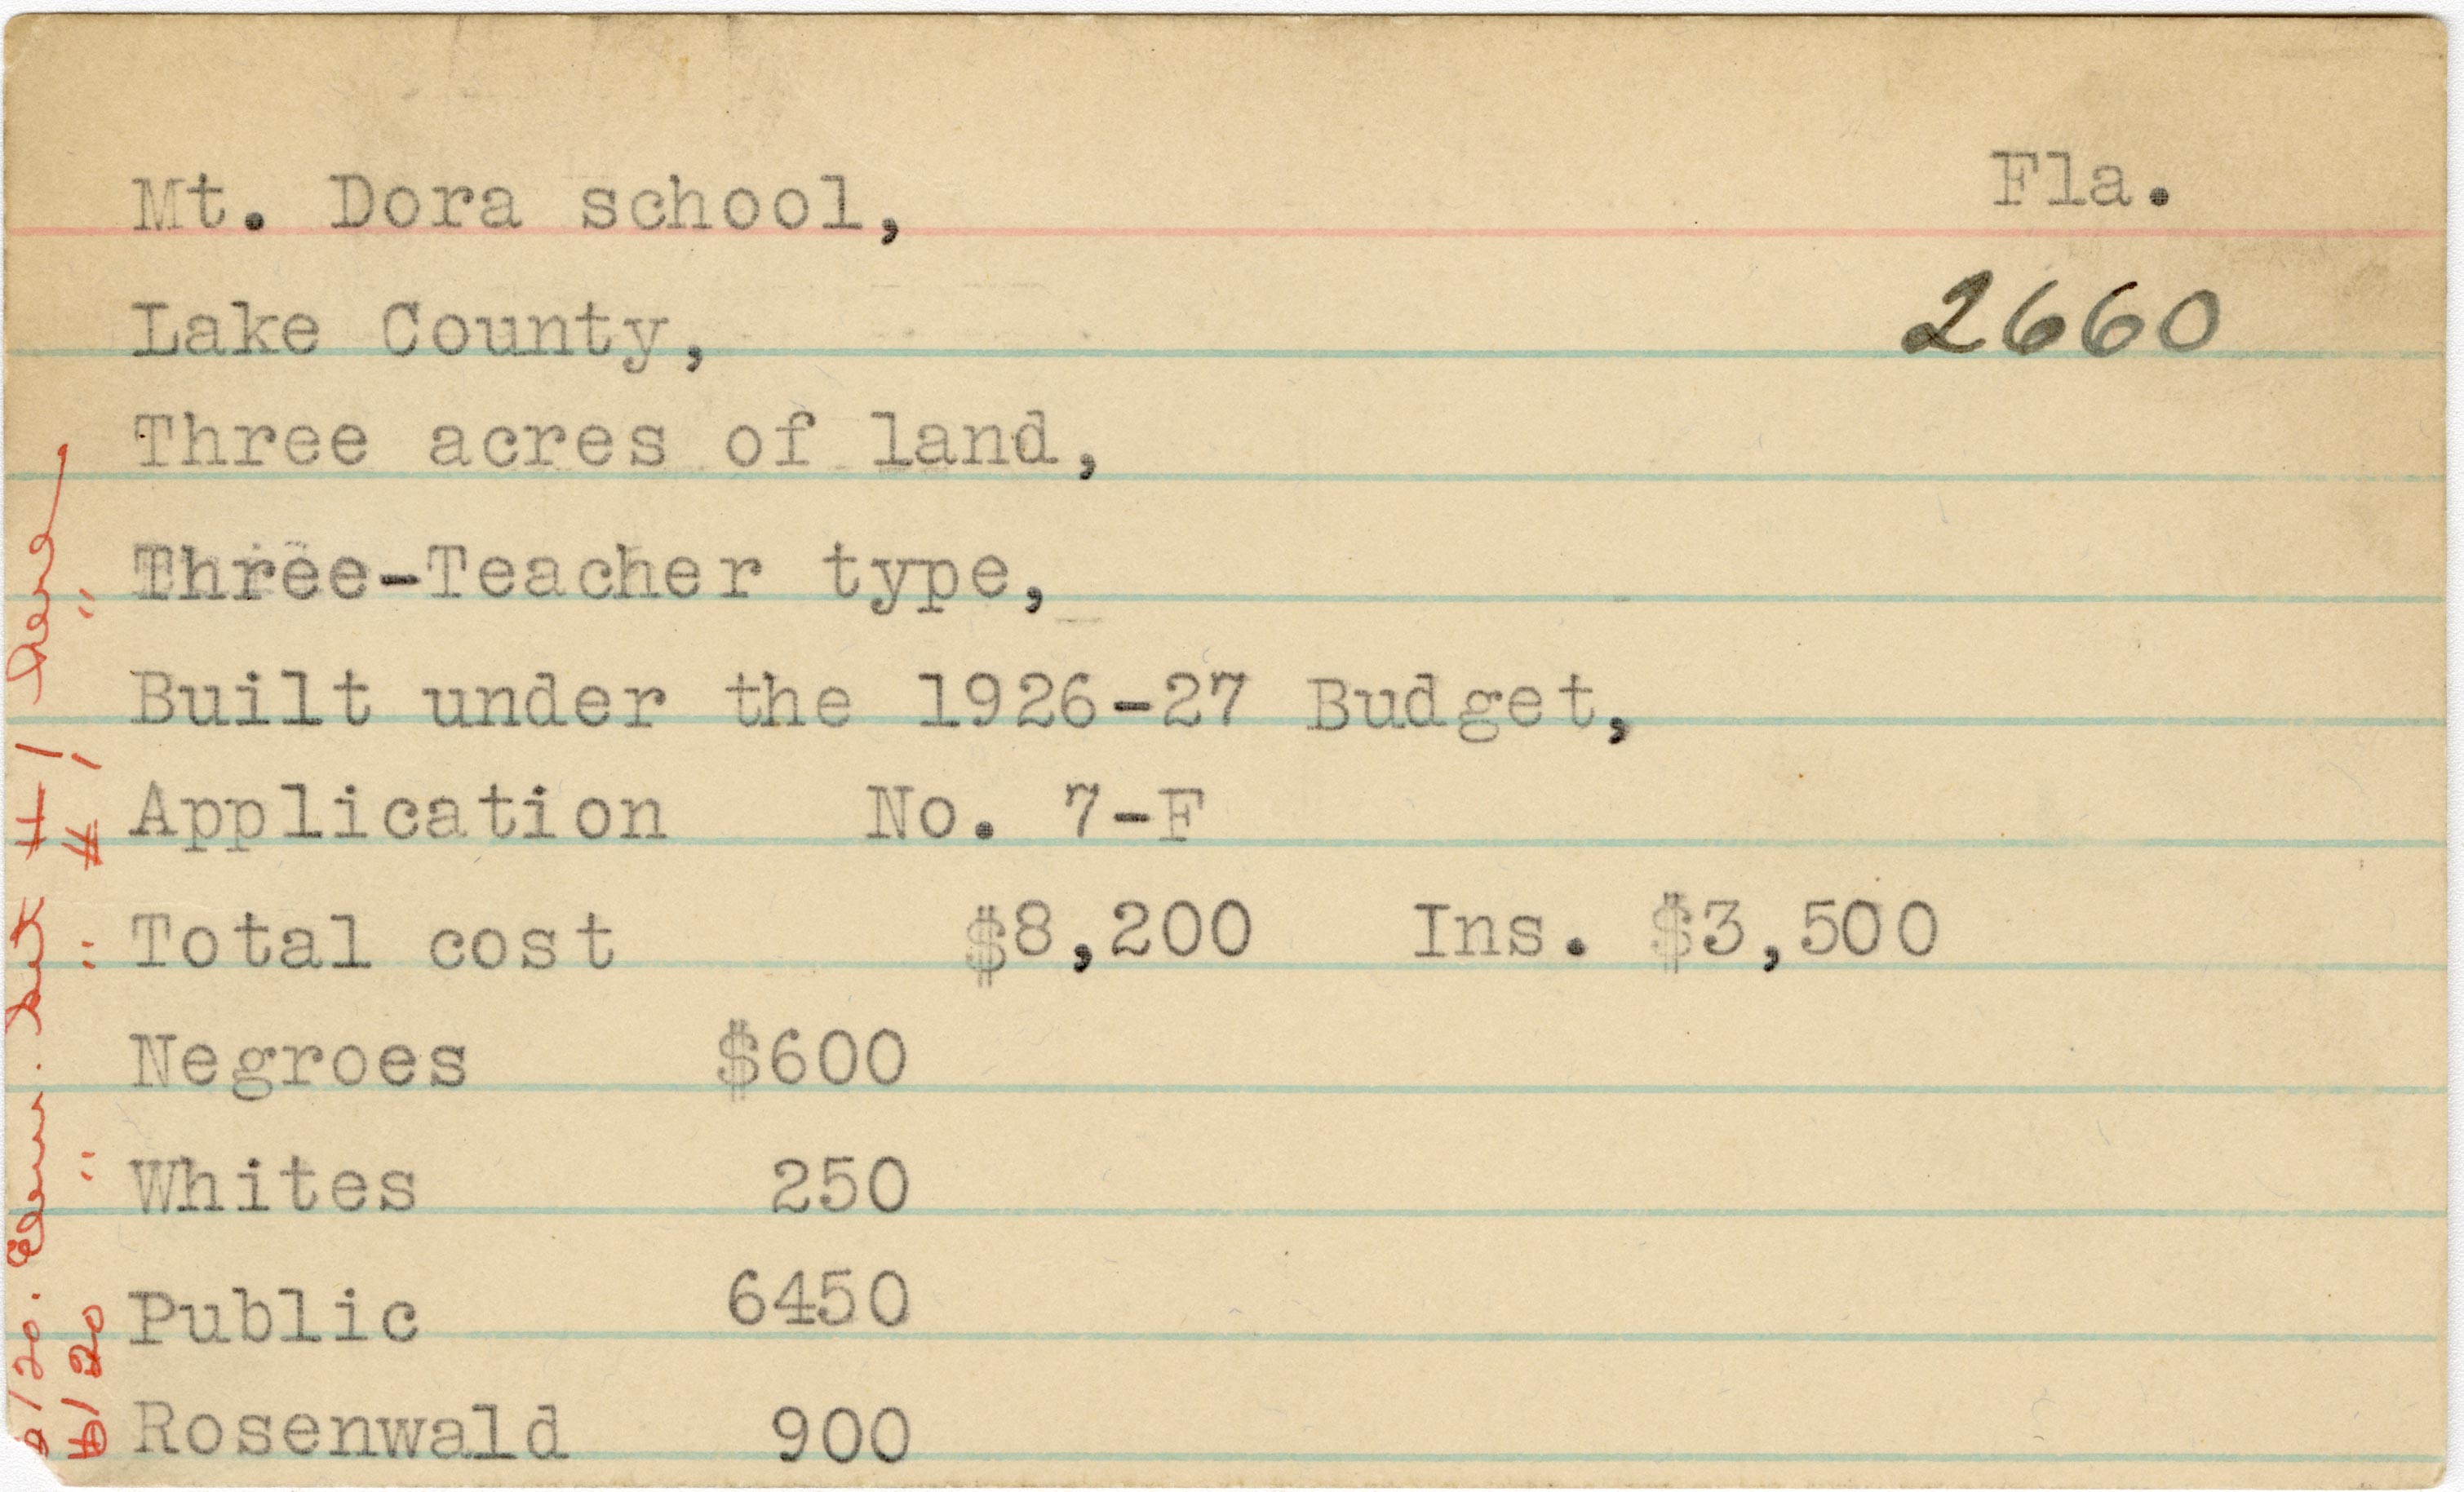 Mt. Dora school,
Fla.
2660
Lake County,
Three acres of land,
Three-Teacher type,
Built under the 1926-27 Budget,
Application No. 7-F
Total cost $8,200 Ins. $3,500
Negroes $600
Whites 250
Public 6450
Rosenwald 900
/20. Elem. set #1 here
20 " " #1 "